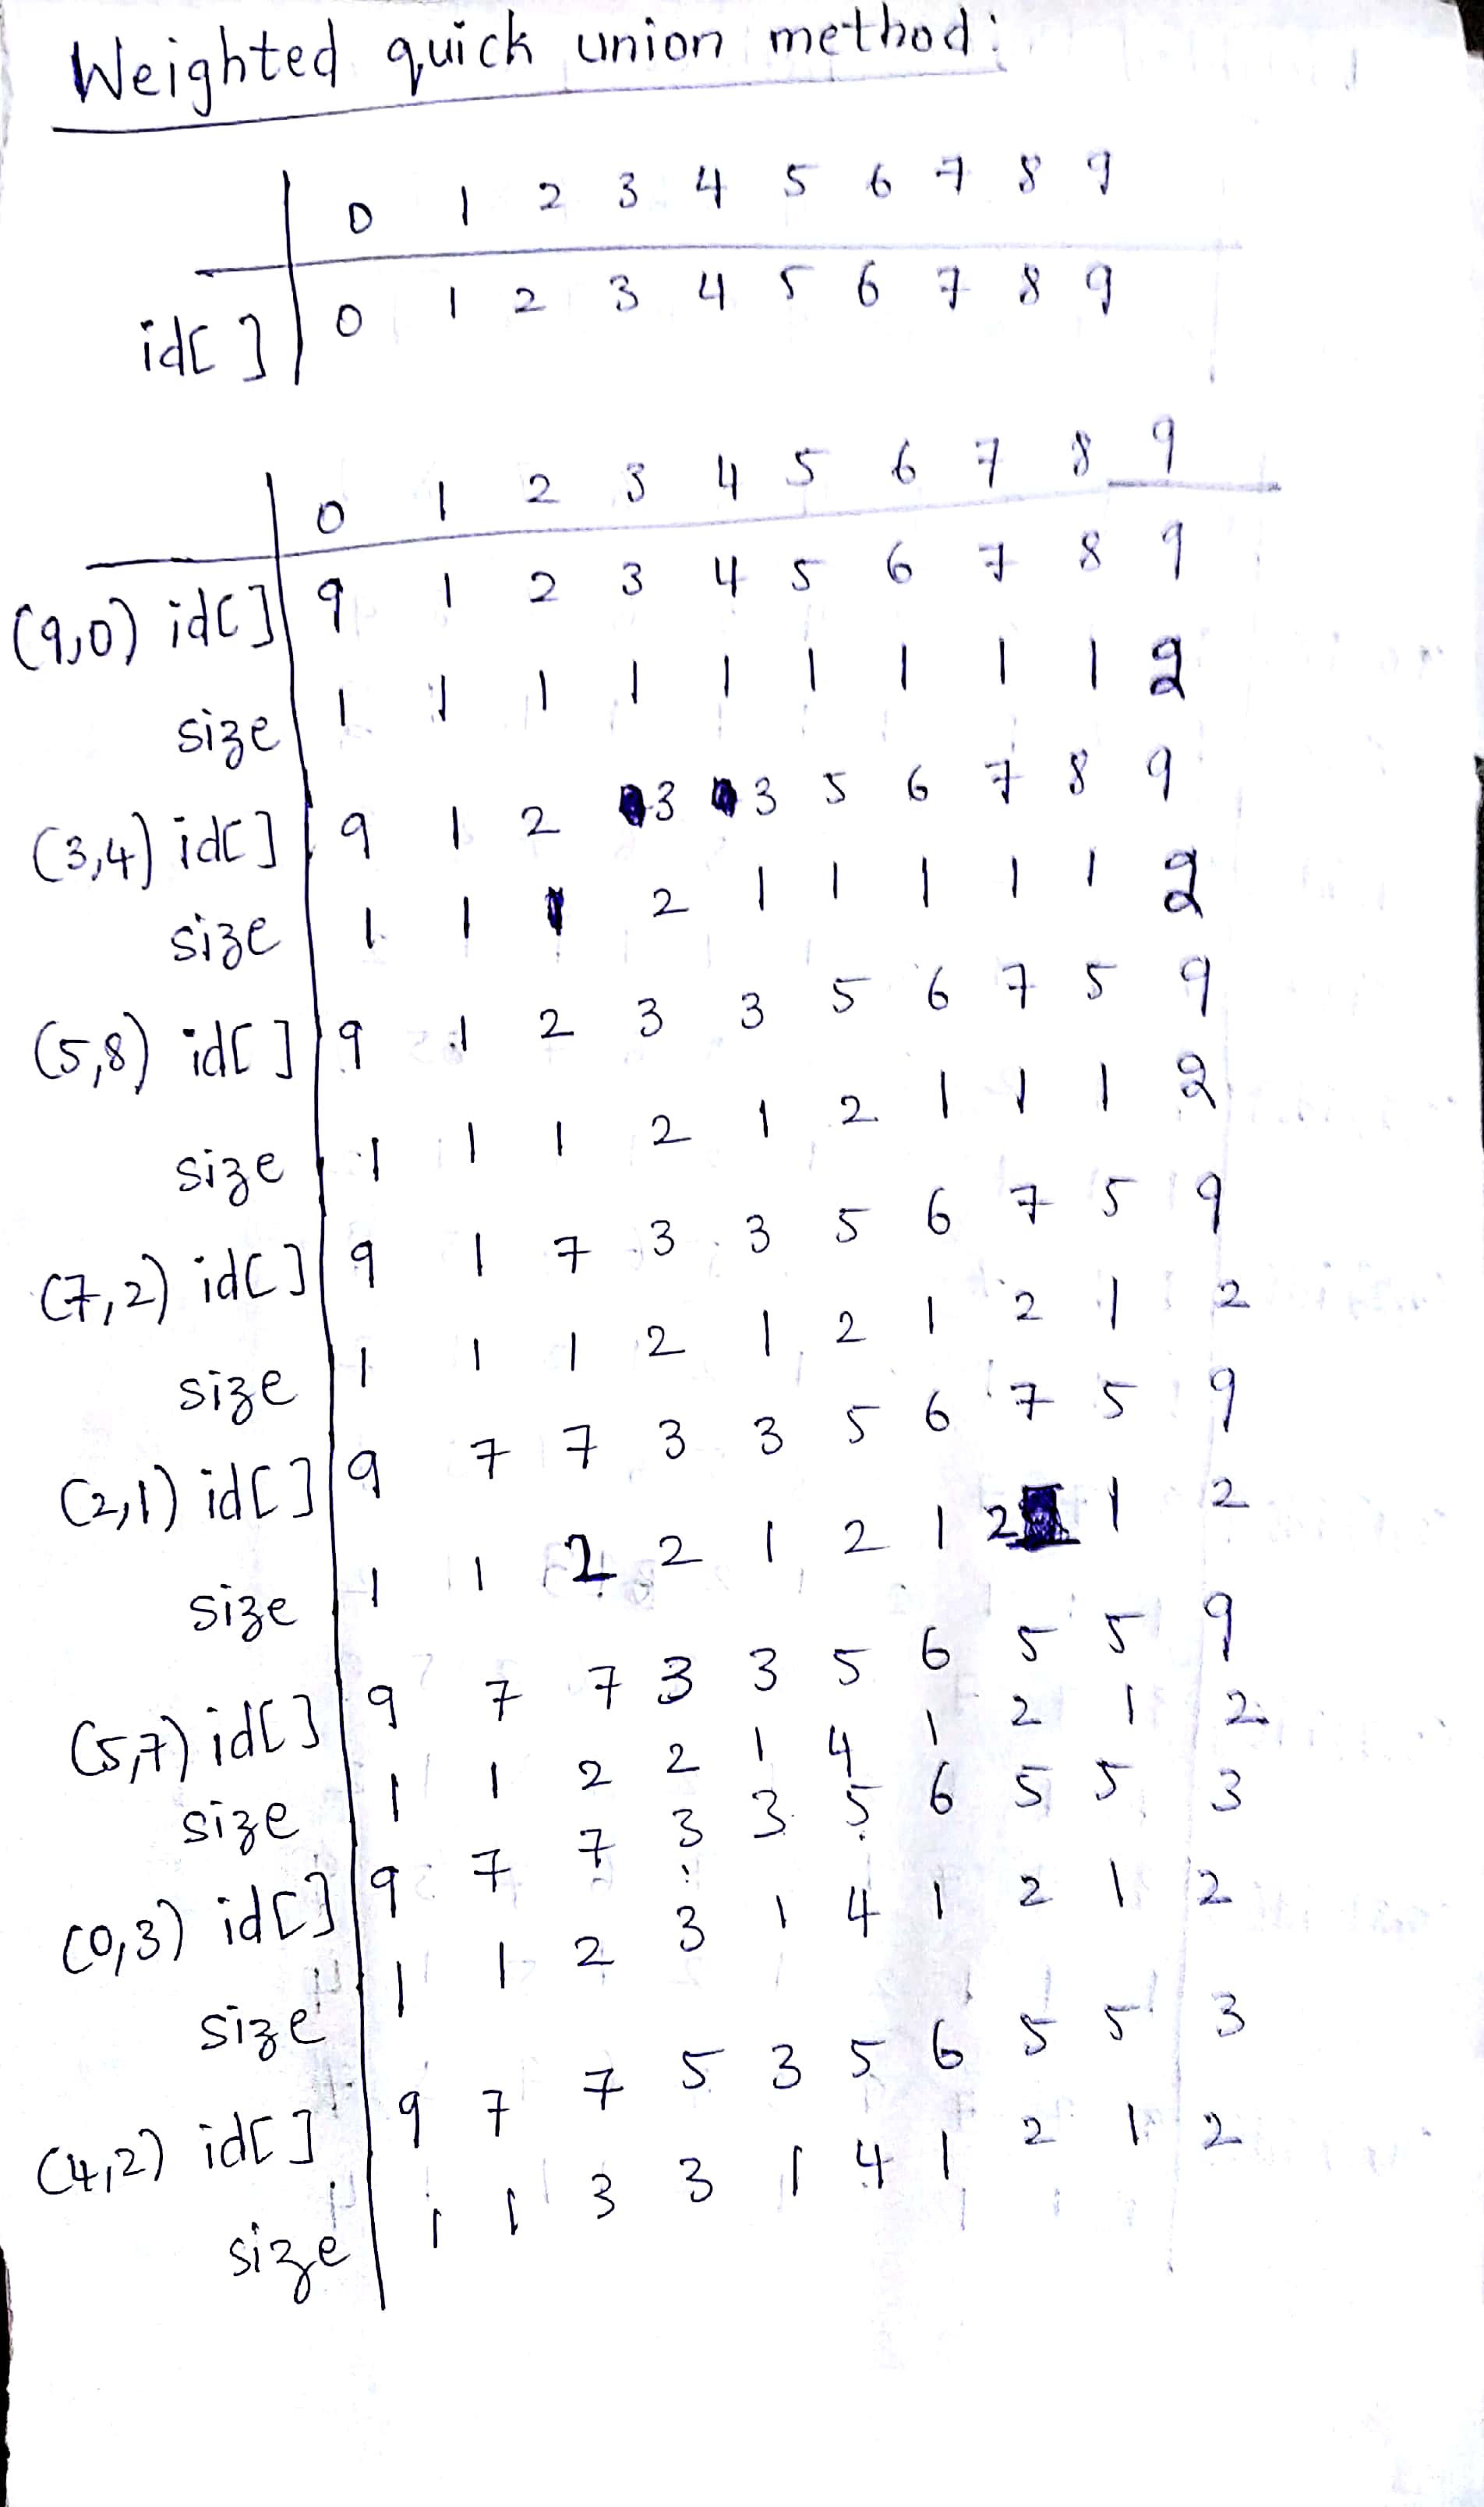 Weighted quick union method:
0 1 2 3 4 5 6 7 8 9
id[] 0 1 2 3 4 5 6 7 8 9
0 1 2 3 4 5 6 7 8 9
(9,0) id[] 9 1 2 3 4 5 6 7 8 9
size 1 1 1 1 1 1 1 1 1 2
(3,4) id[] 9 1 2 3 3 5 6 7 8 9
size 1 1 1 2 1 1 1 1 1 2
(5,8) id[] 9 1 2 3 3 5 6 7 5 9
size 1 1 1 2 1 2 1 1 1 2
(7,2) id[] 9 1 7 3 3 5 6 7 5 9
size 1 1 1 2 1 2 1 2 1 2
(2,1) id[] 9 7 7 3 3 5 6 7 5 9
size 1 1 2 2 1 2 1 2 1 2
(5,7) id[] 9 7 7 3 3 5 6 5 5 9
size 1 1 2 2 1 4 1 2 1 2
(0,3) id[] 9 7 7 3 3 5 6 5 5 3
size 1 1 2 3 1 4 1 2 1 2
(4,2) id[] 9 7 7 5 3 5 6 5 5 3
size 1 1 3 3 1 4 1 2 1 2